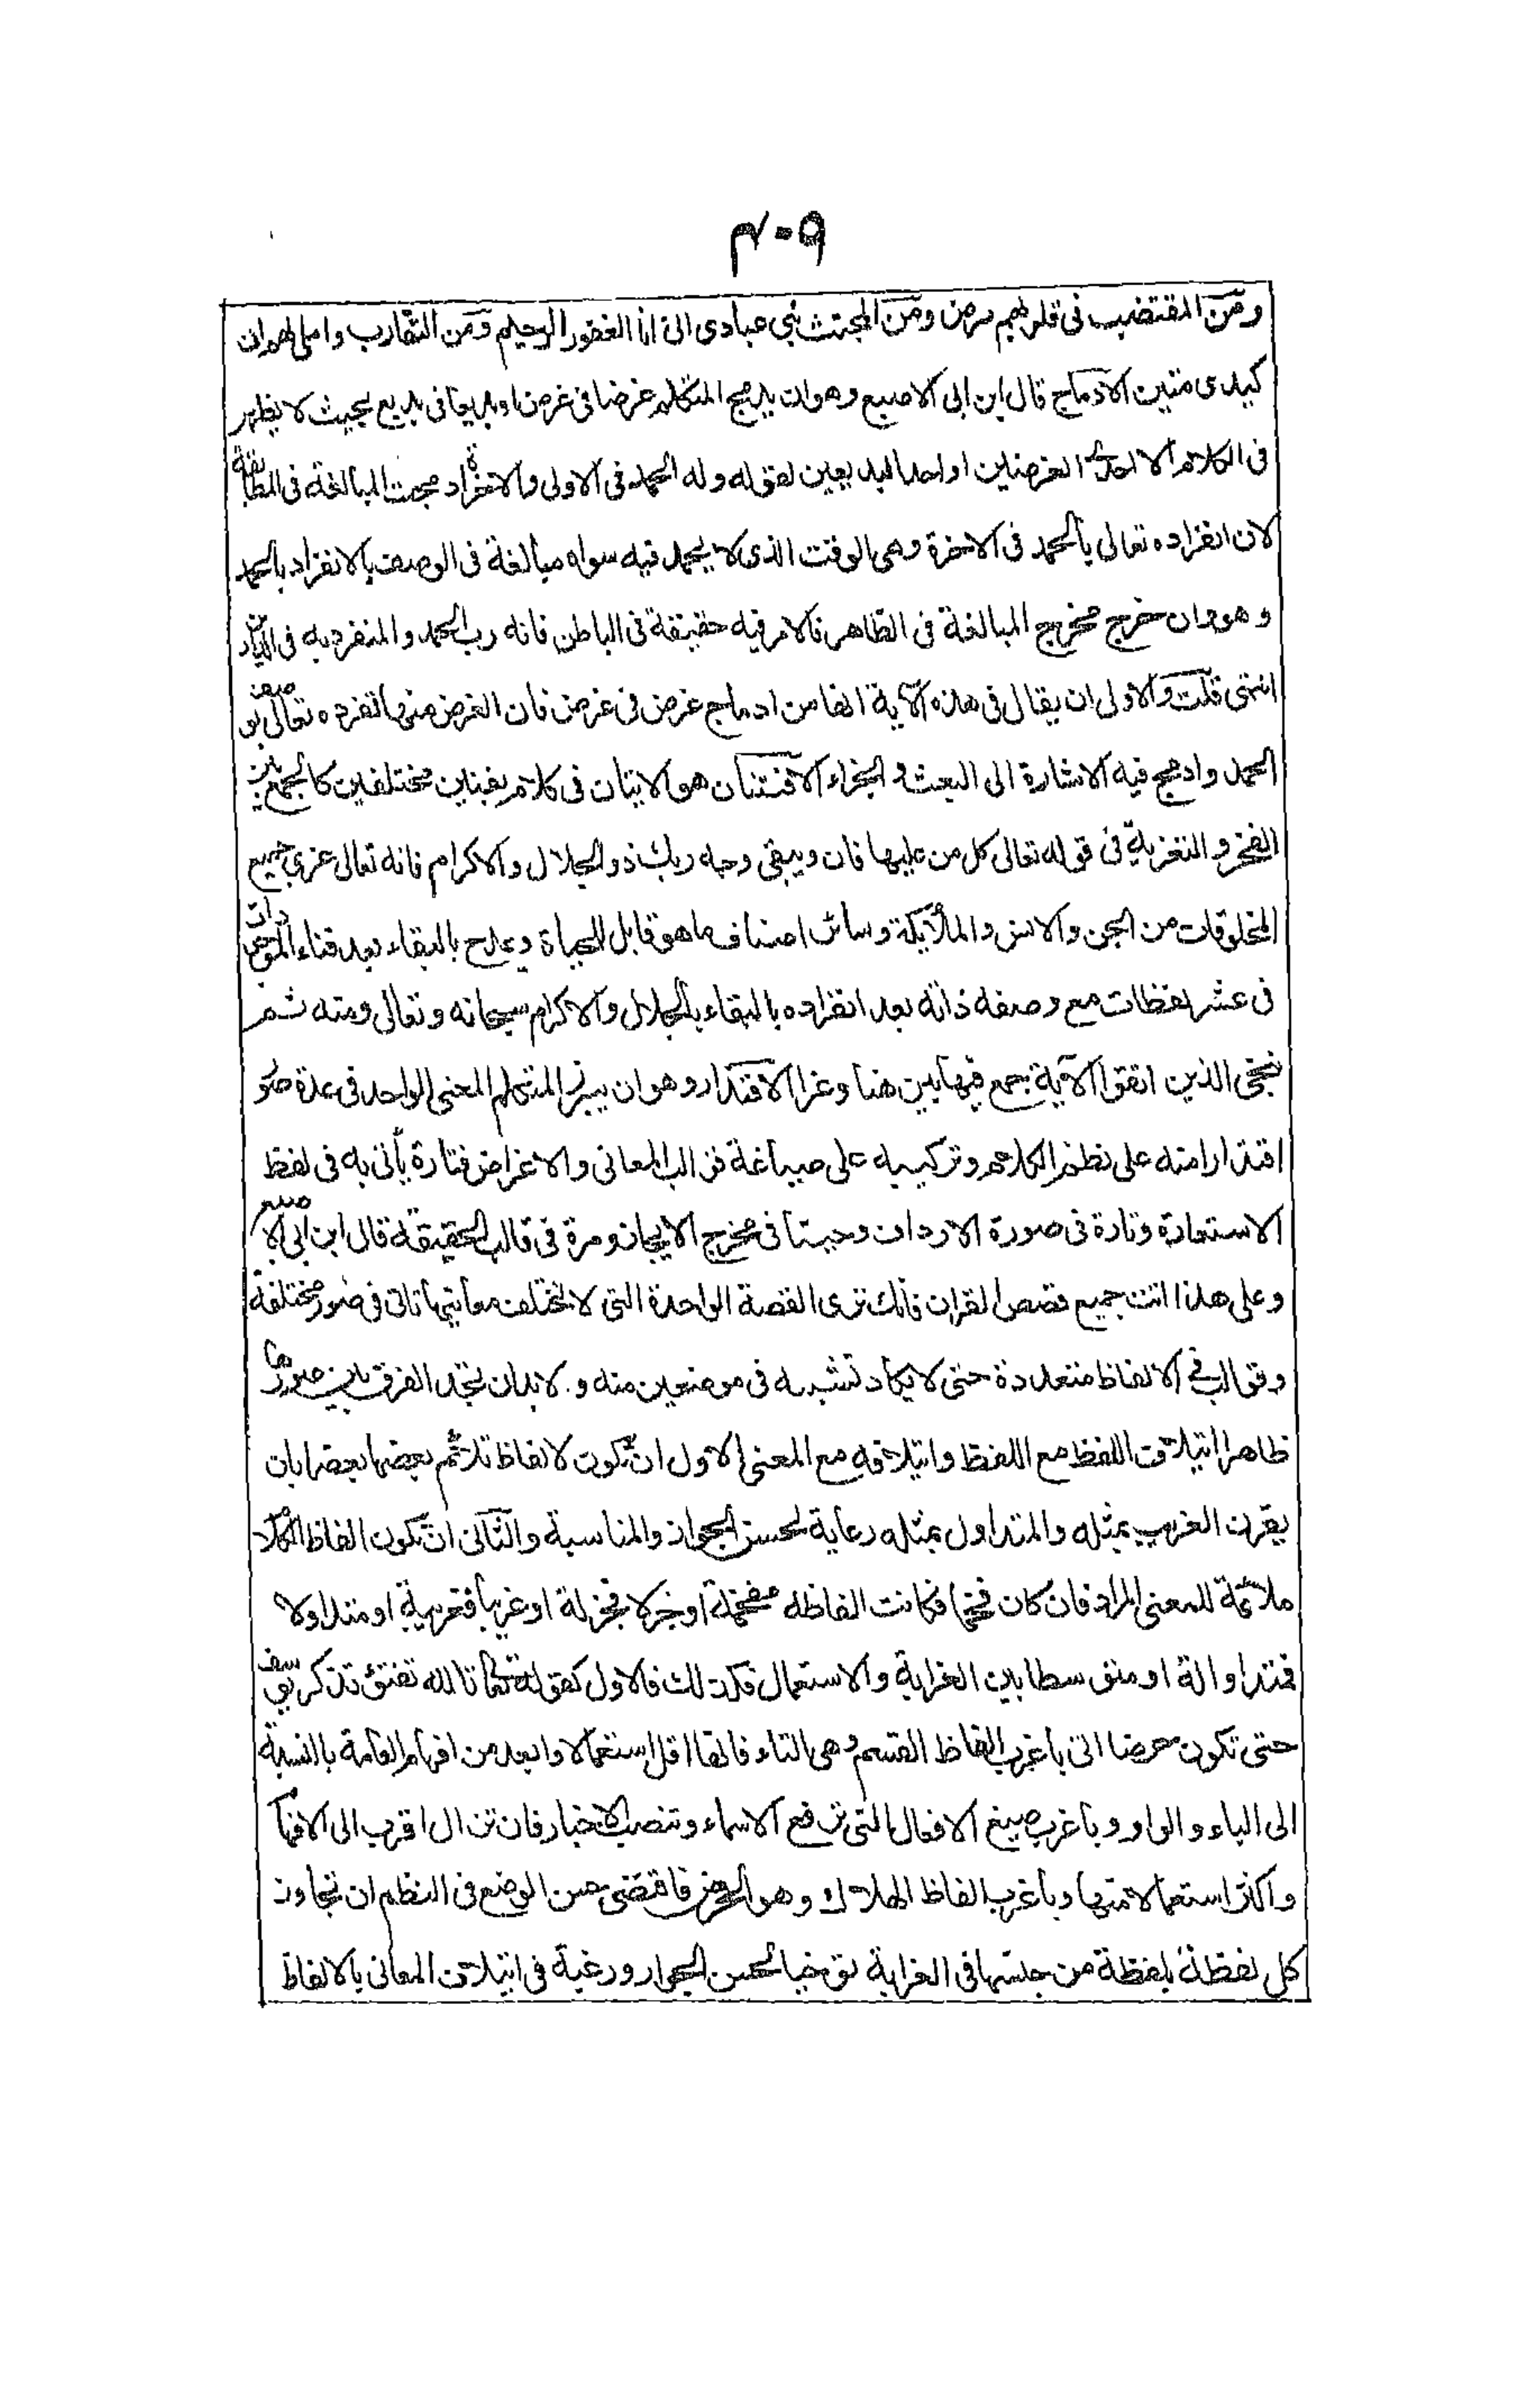 ٣٠٩
ومن المقتضب فى قلوبهم مرض ومن المجتث نبى عبادى انى انا الغفور الرحيم ومن المتقارب واملى لهم ان
كيدى متين الادماج قال ابن ابى الاصبع وهو ان يدمج المتكلم غرضا فى غرض او بديعا فى بديع بحيث لا يظهر
فى الكلام الا احد الغرضين او احد البديعين لقوله وله الحمد فى الاولى والاخرة ادمجت المبالغة فى المطابقة
لان انفراده تعالى بالحمد فى الاخرة وهى الوقت الذى لا يحمد فيه سواه مبالغة فى الوصف بالانفراد بالحمد
وهو وان خرج مخرج المبالغة فى الظاهر فالامر فيه حقيقة فى الباطن فانه رب الحمد والمنفرد به فى الدارين
انتهى قلت والاولى ان يقال فى هذه الآية انها من ادماج غرض فى غرض فان الغرض منها تفرده تعالى بوصف
الحمد وادمج فيه الاشارة الى البعث والجزاء الافتنان هو الاتيان فى كلام بفنين مختلفين كالجمع بين
الفخر والتعزية فى قوله تعالى كل من عليها فان ويبقى وجه ربك ذو الجلال والاكرام فانه تعالى عزى جميع
المخلوقات من الجن والانس والملائكة وسائر اصناف ما هو قابل للحياة ويمدح بالبقاء بعد فناء الموجودات
فى عشر لفظات مع وصفه ذاته بعد انفراده بالبقاء بالجلال والاكرام سبحانه وتعالى ومنه ثم
ننجى الذين اتقوا الآية جمع فيها بين هنا وعزا الاقتدار وهو ان يبرز المتكلم المعنى الواحد فى عدة صور
اقتدارا منه على نظم الكلام وتركيبه على صياغة قوالب المعانى والاغراض فتارة يأتى به فى لفظ
الاستعارة وتارة فى صورة الارداف وحينا فى مخرج الايجاز ومرة فى قالب الحقيقة قال ابن ابى الاصبع
وعلى هذا اتت جميع قصص القران فانك ترى القصة الواحدة التى لا تختلف معانيها تاتى فى صور مختلفة
وقوالب فى الالفاظ متعددة حتى لا تكاد تشتبه فى موضعين منه ولا بد ان تجد الفرق بين صورها
ظاهرا ايتلاف اللفظ مع اللفظ وايتلافه مع المعنى الاول ان تكون لالفاظ تلائم بعضها بعضا بان
يقرن الغريب بمثله والمتداول بمثله رعاية لحسن الجوار والمناسبة والثانى ان تكون الفاظ الكلام
ملائمة للمعنى المراد فان كان فخما فكانت الفاظه مفخمة او جزلا فجزلة او غريبا فغريبة او متداولا
فمتداوالة او متوسطا بين الغرابة والاستعمال فكذلك فالاول كقوله تعالى تالله تفتؤ تذكر يوسف
حتى تكون حرضا اتى باغرب الفاظ القسم وهى التاء فانها اقل استعمالا وابعد من افهام العامة بالنسبة
الى الباء والواو وباغرب صيغ الافعال التى ترفع الاسماء وتنصب الاخبار فان تزال اقرب الى الافهام
واكثر استعمالا منها وباغرب الفاظ الهلاك وهو الحرض فاقتضى حسن الوضع فى النظم ان تجاور
كل لفظة بلفظة من جنسها فى الغرابة توخيا لحسن الجوار ورغبة فى ايتلاف المعانى بالالفاظ